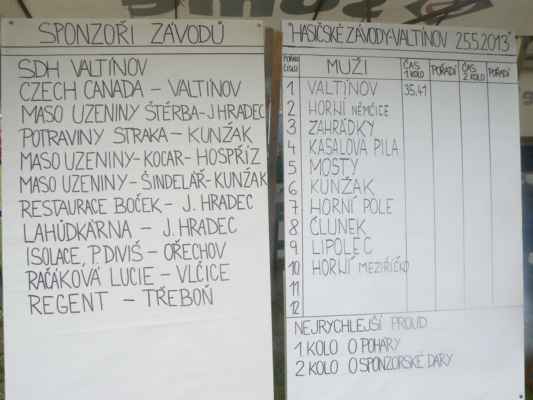 SPONZOŘI ZÁVODŮ
SDH VALTÍNOV
CZECH CANADA – VALTÍNOV
MASO UZENINY ŠTĚRBA-J.HRADEC
POTRAVINY STRAKA – KUNŽAK
MASO UZENINY-KOCAR-HOSPŘÍZ
MASO UZENINY-ŠINDELÁŘ-KUNŽAK
RESTAURACE BOČEK – J. HRADEC
LAHŮDKÁRNA – J. HRADEC
ISOLACE, P. DIVIŠ – OŘECHOV
RAČÁKOVÁ LUCIE – VLČICE
REGENT – TŘEBOŇ
HASIČSKÉ ZÁVODY-VALTÍNOV 25.5.2013
POŘAD. ČÍSLO MUŽI ČAS 1.KOLO POŘADÍ ČAS 2.KOLO POŘADÍ
1 VALTÍNOV 35,41
2 HORNÍ NĚMČICE
3 ZAHRÁDKY
4 KASALOVA PILA
5 MOSTY
6 KUNŽAK
7 HORNÍ POLE
8 ČLUNEK
9 LIPOLEC
10 HORNÍ MEZIŘÍČKO
11
12
NEJRYCHLEJŠÍ PROUD
1. KOLO O POHÁRY
2. KOLO O SPONZORSKÉ DARY